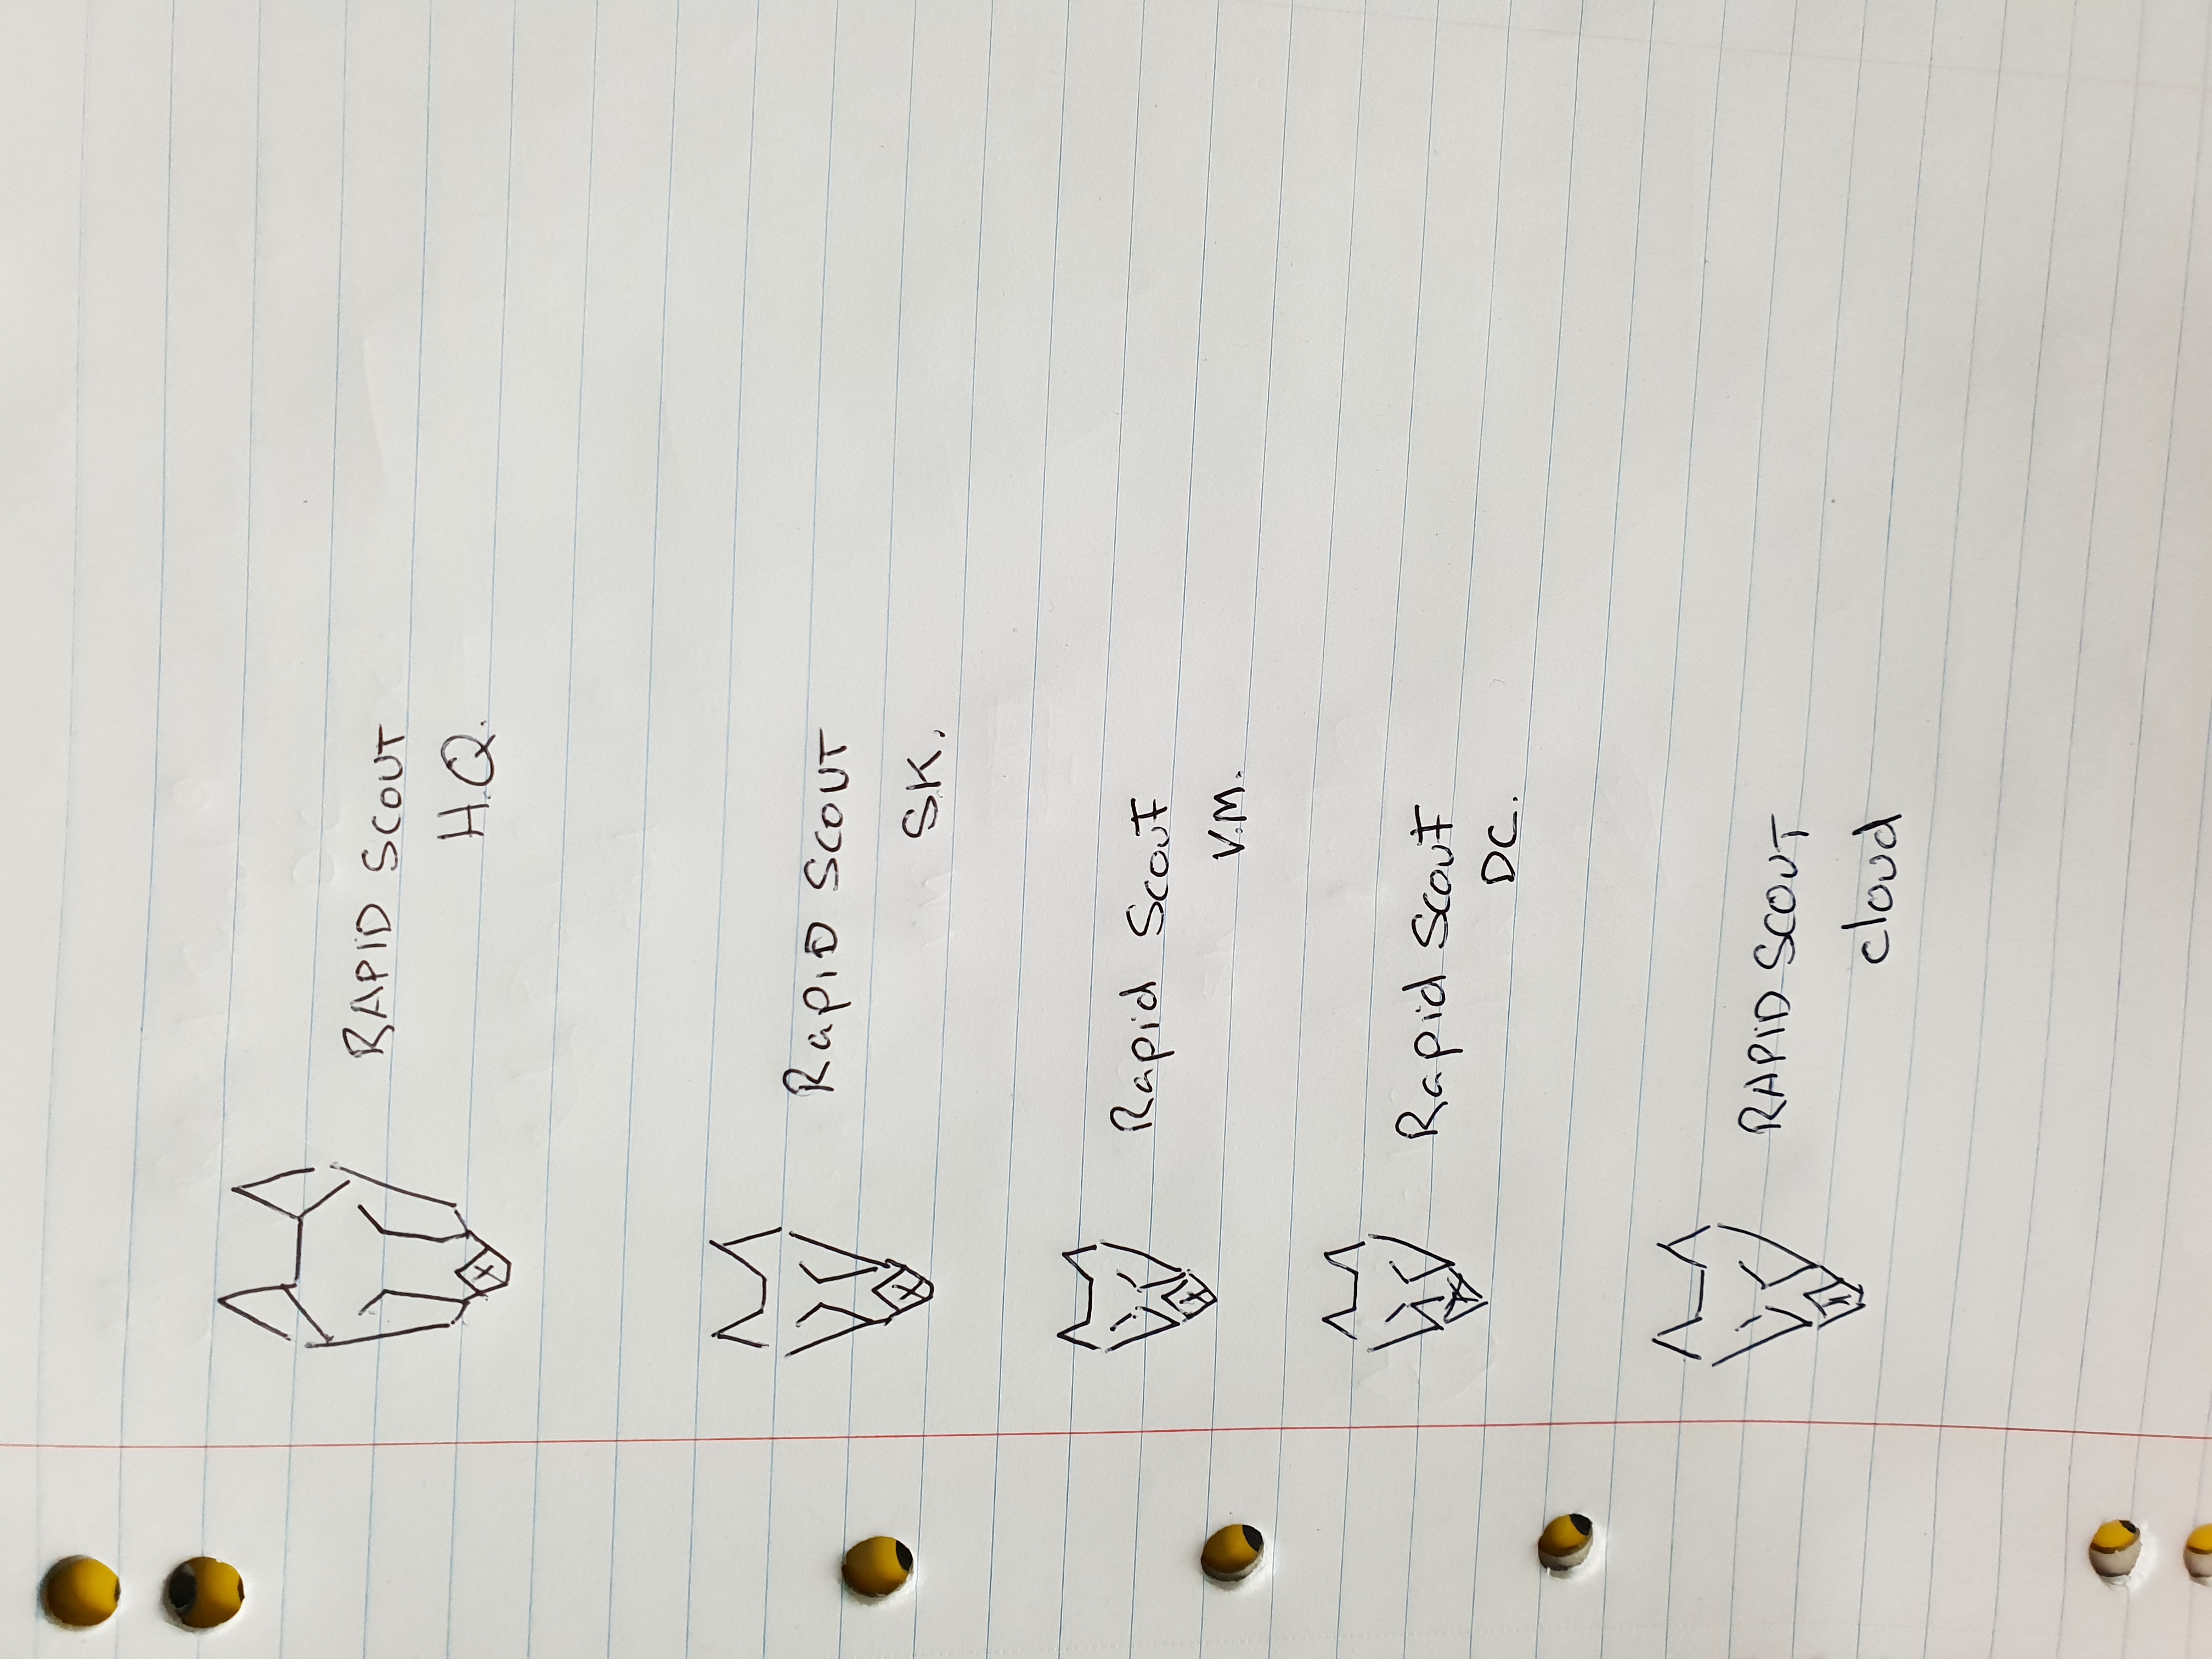 RAPID SCOUT
H.Q.
RapiD SCOUT
SK.
Rapid Scout
V.M.
Rapid Scout
DC.
RAPID SCOUT
cloud